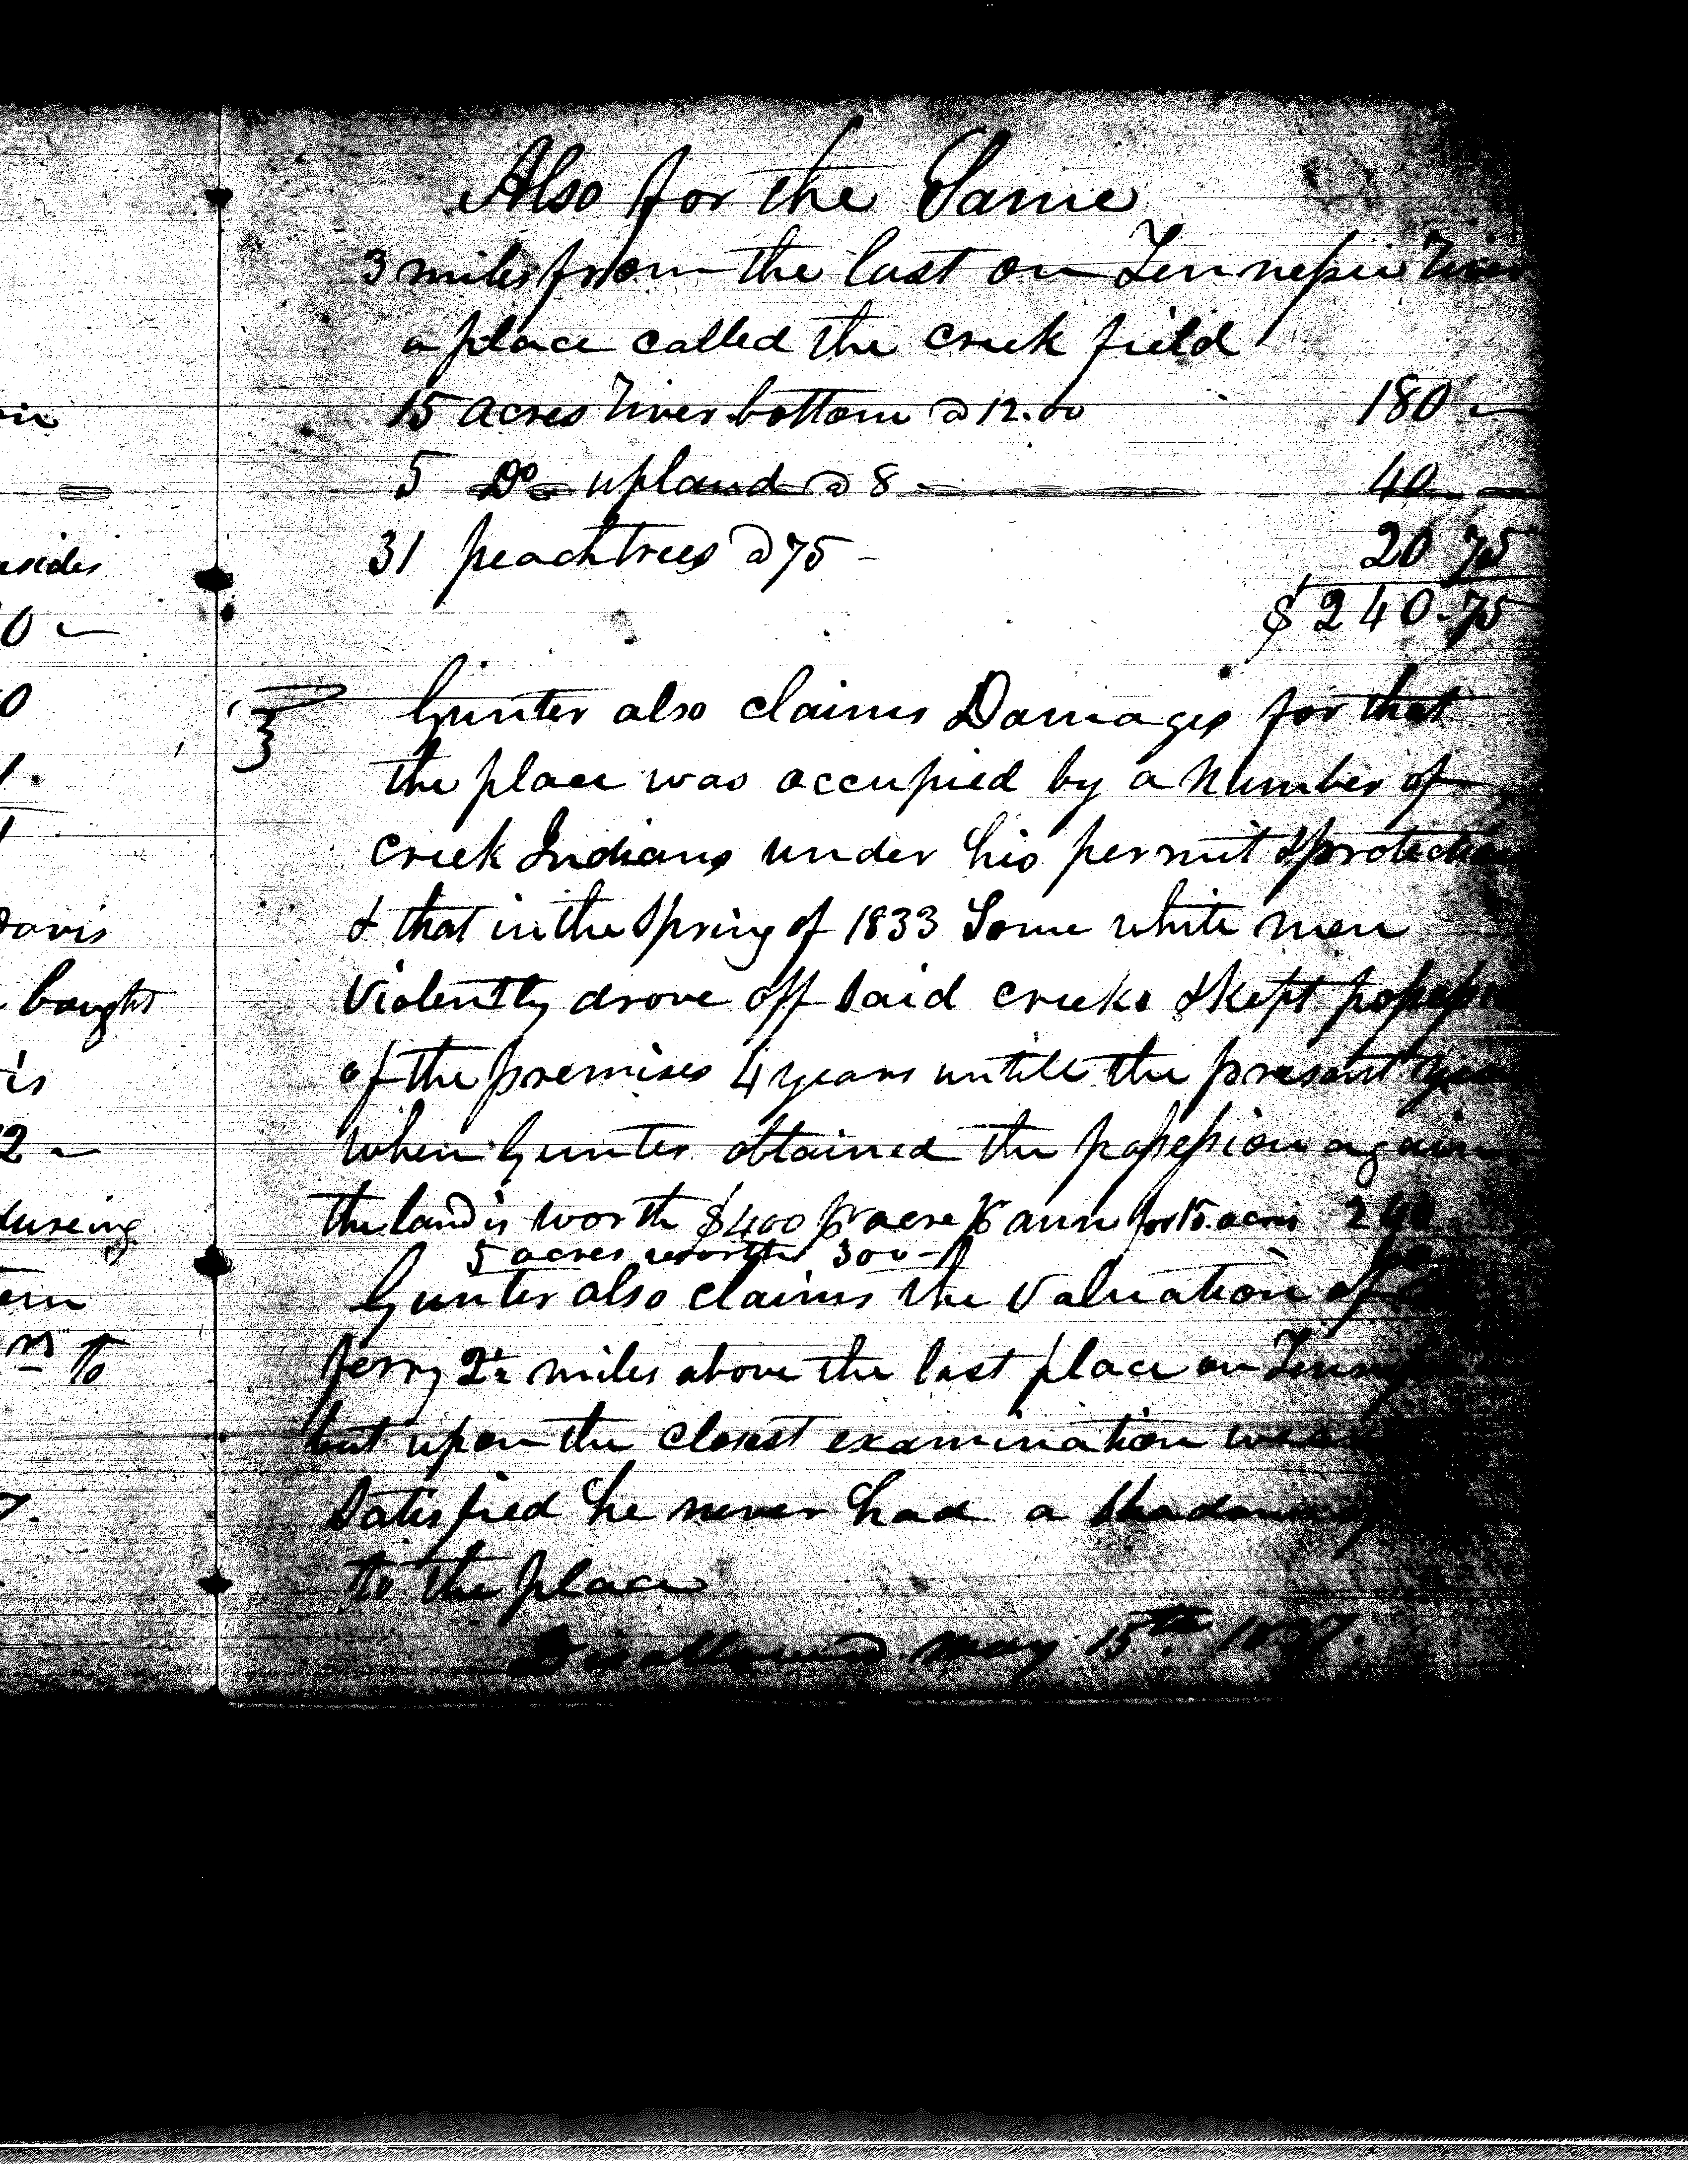 Also for the Same
3 miles from the last on Tennessee River
a place called the creek field
15 acres River bottom @ 12.00 180 —
5 Do upland @ 8 — 40 —
31 peachtrees @ 75 — 20 75
$ 240.75
Gunter also claims Damages for that
the place was occupied by a Number of
creek Indians under his permit & protection
& that in the Spring of 1833 Some white men
Violently drove off Said creeks & kept possession
of the premises 4 years untill the present year
when Gunter obtained the possession again
the land is worth $400 pr acre pr ann for 15 acres 240
5 acres worth 300 —
Gunter also claims the Valuation of
ferry 2½ miles above the last place on
but upon the closest examination
Satisfied he never had a Shadow of
to the place
Disallowed May 15th 1837.
in
esides
0 —
0
1.
1
Davis
bought
is
2 —
dureing
ern
to
7.